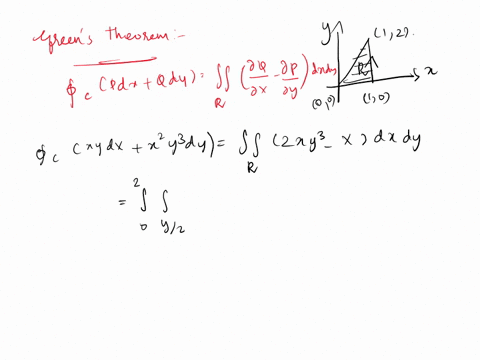 Green's Theorem:-
∮c (Pdx + Qdy) = ∬R (∂Q/∂x - ∂P/∂y) dxdy
y
(1,2).
R
x
(0,0)
(1,0)
∮c (xydx + x²y³dy) = ∬R (2xy³ - x) dxdy
= ∫₀² ∫y/2